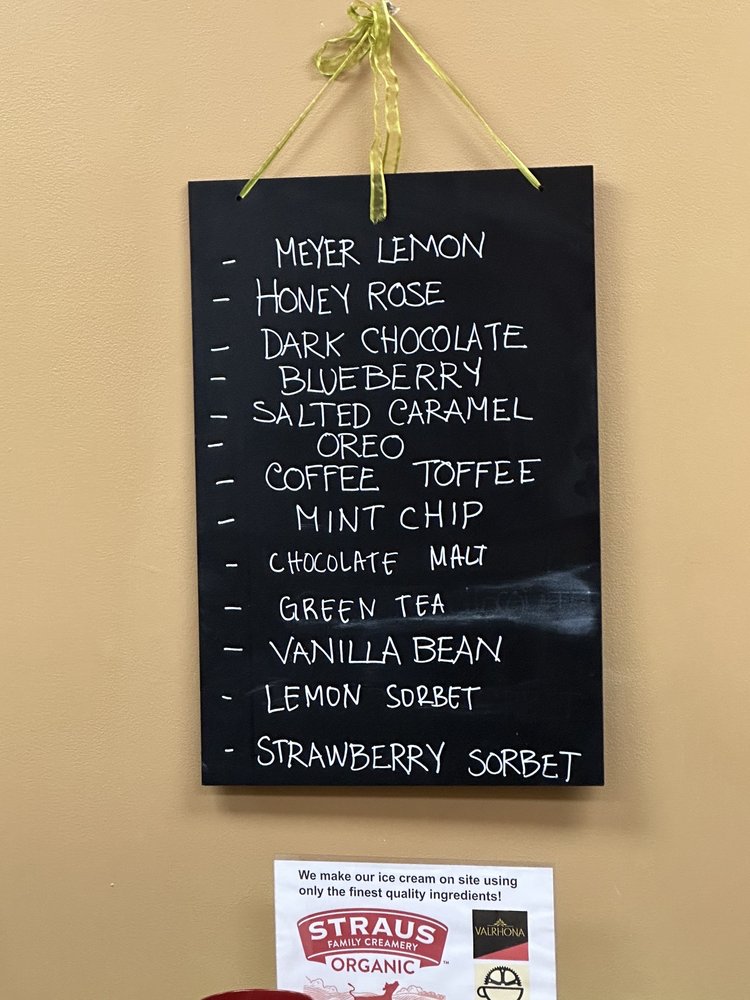 - MEYER LEMON
- HONEY ROSE
- DARK CHOCOLATE
- BLUEBERRY
- SALTED CARAMEL
- OREO
- COFFEE TOFFEE
- MINT CHIP
- CHOCOLATE MALT
- GREEN TEA
- VANILLA BEAN
- LEMON SORBET
- STRAWBERRY SORBET
We make our ice cream on site using
only the finest quality ingredients!
STRAUS
FAMILY CREAMERY
ORGANIC
VALRHONA